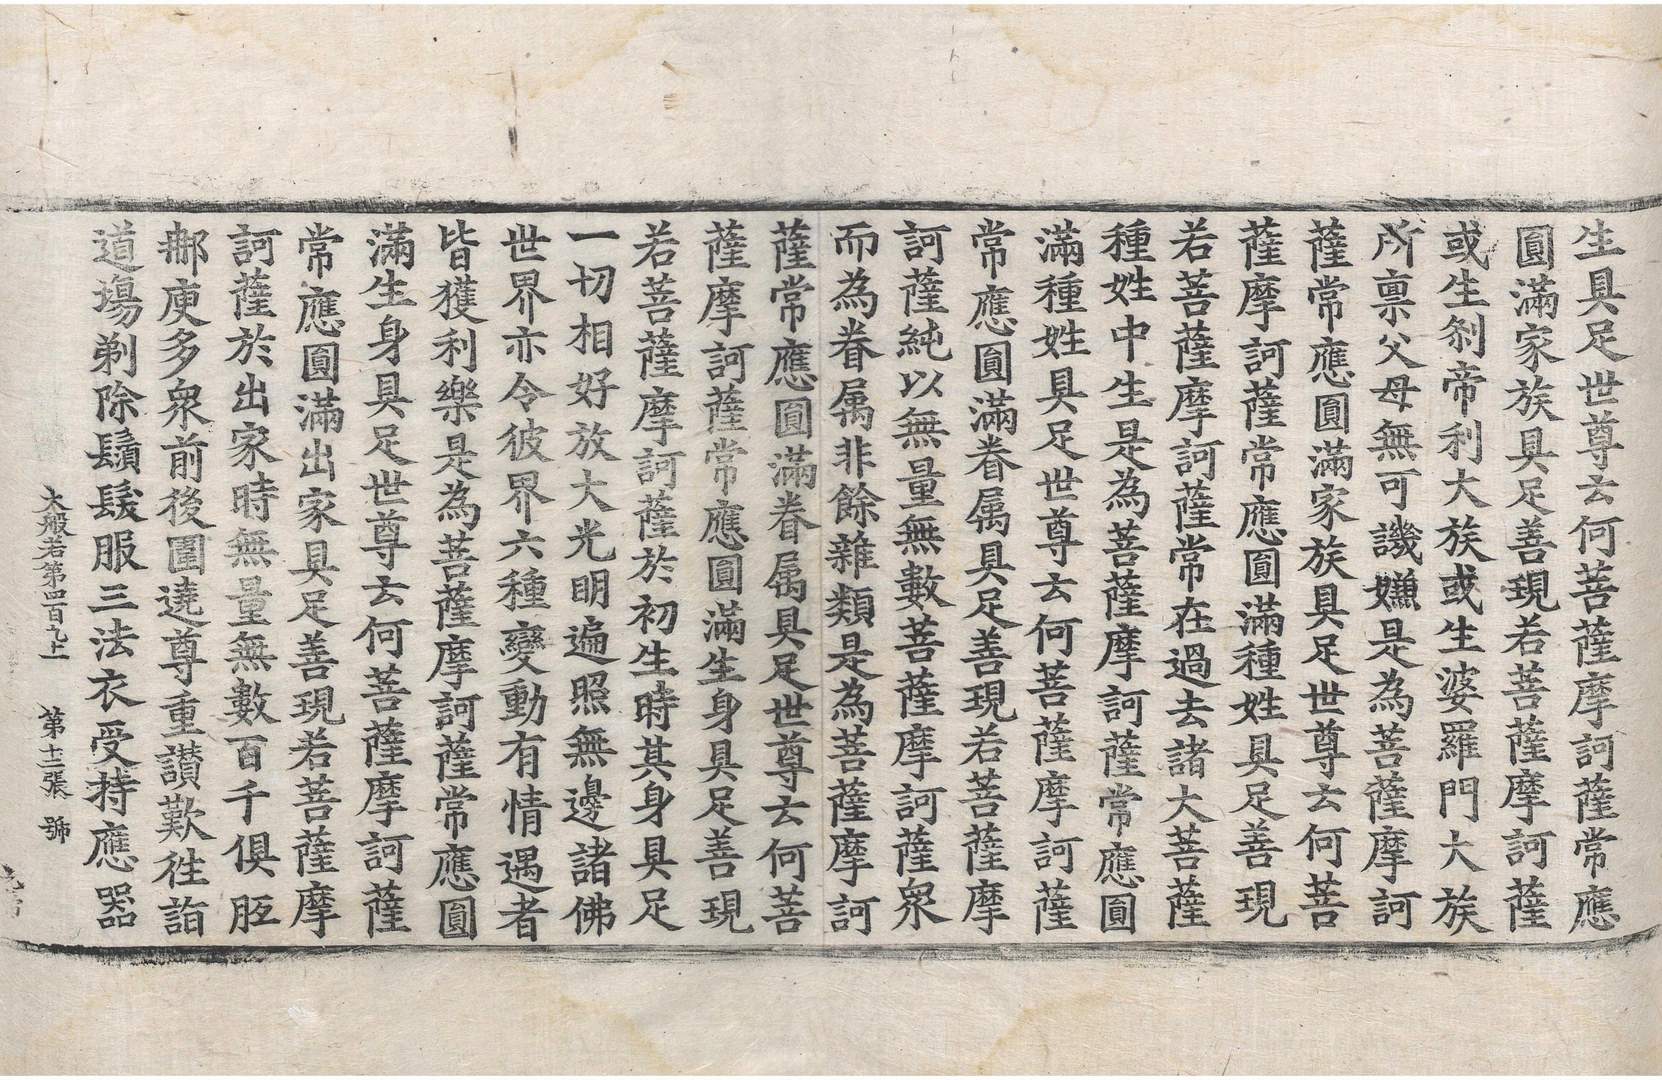 生具足世尊云何菩薩摩訶薩常應
圓滿家族具足善現若菩薩摩訶薩
或生剎帝利大族或生婆羅門大族
所稟父母無可譏嫌是為菩薩摩訶
薩常應圓滿家族具足世尊云何菩
薩摩訶薩常應圓滿種姓具足善現
若菩薩摩訶薩常在過去諸大菩薩
種姓中生是為菩薩摩訶薩常應圓
滿種姓具足世尊云何菩薩摩訶薩
常應圓滿眷属具足善現若菩薩摩
訶薩純以無量無數菩薩摩訶薩眾
而為眷属非餘雜類是為菩薩摩訶
薩常應圓滿眷属具足世尊云何菩
薩摩訶薩常應圓滿生身具足善現
若菩薩摩訶薩於初生時其身具足
一切相好放大光明遍照無邊諸佛
世界亦令彼界六種變動有情遇者
皆獲利樂是為菩薩摩訶薩常應圓
滿生身具足世尊云何菩薩摩訶薩
常應圓滿出家具足善現若菩薩摩
訶薩於出家時無量無數百千俱胝
那庾多眾前後圍遶尊重讃歎往詣
道場剃除鬚髮服三法衣受持應器
大般若第四百九上 第十二張 號